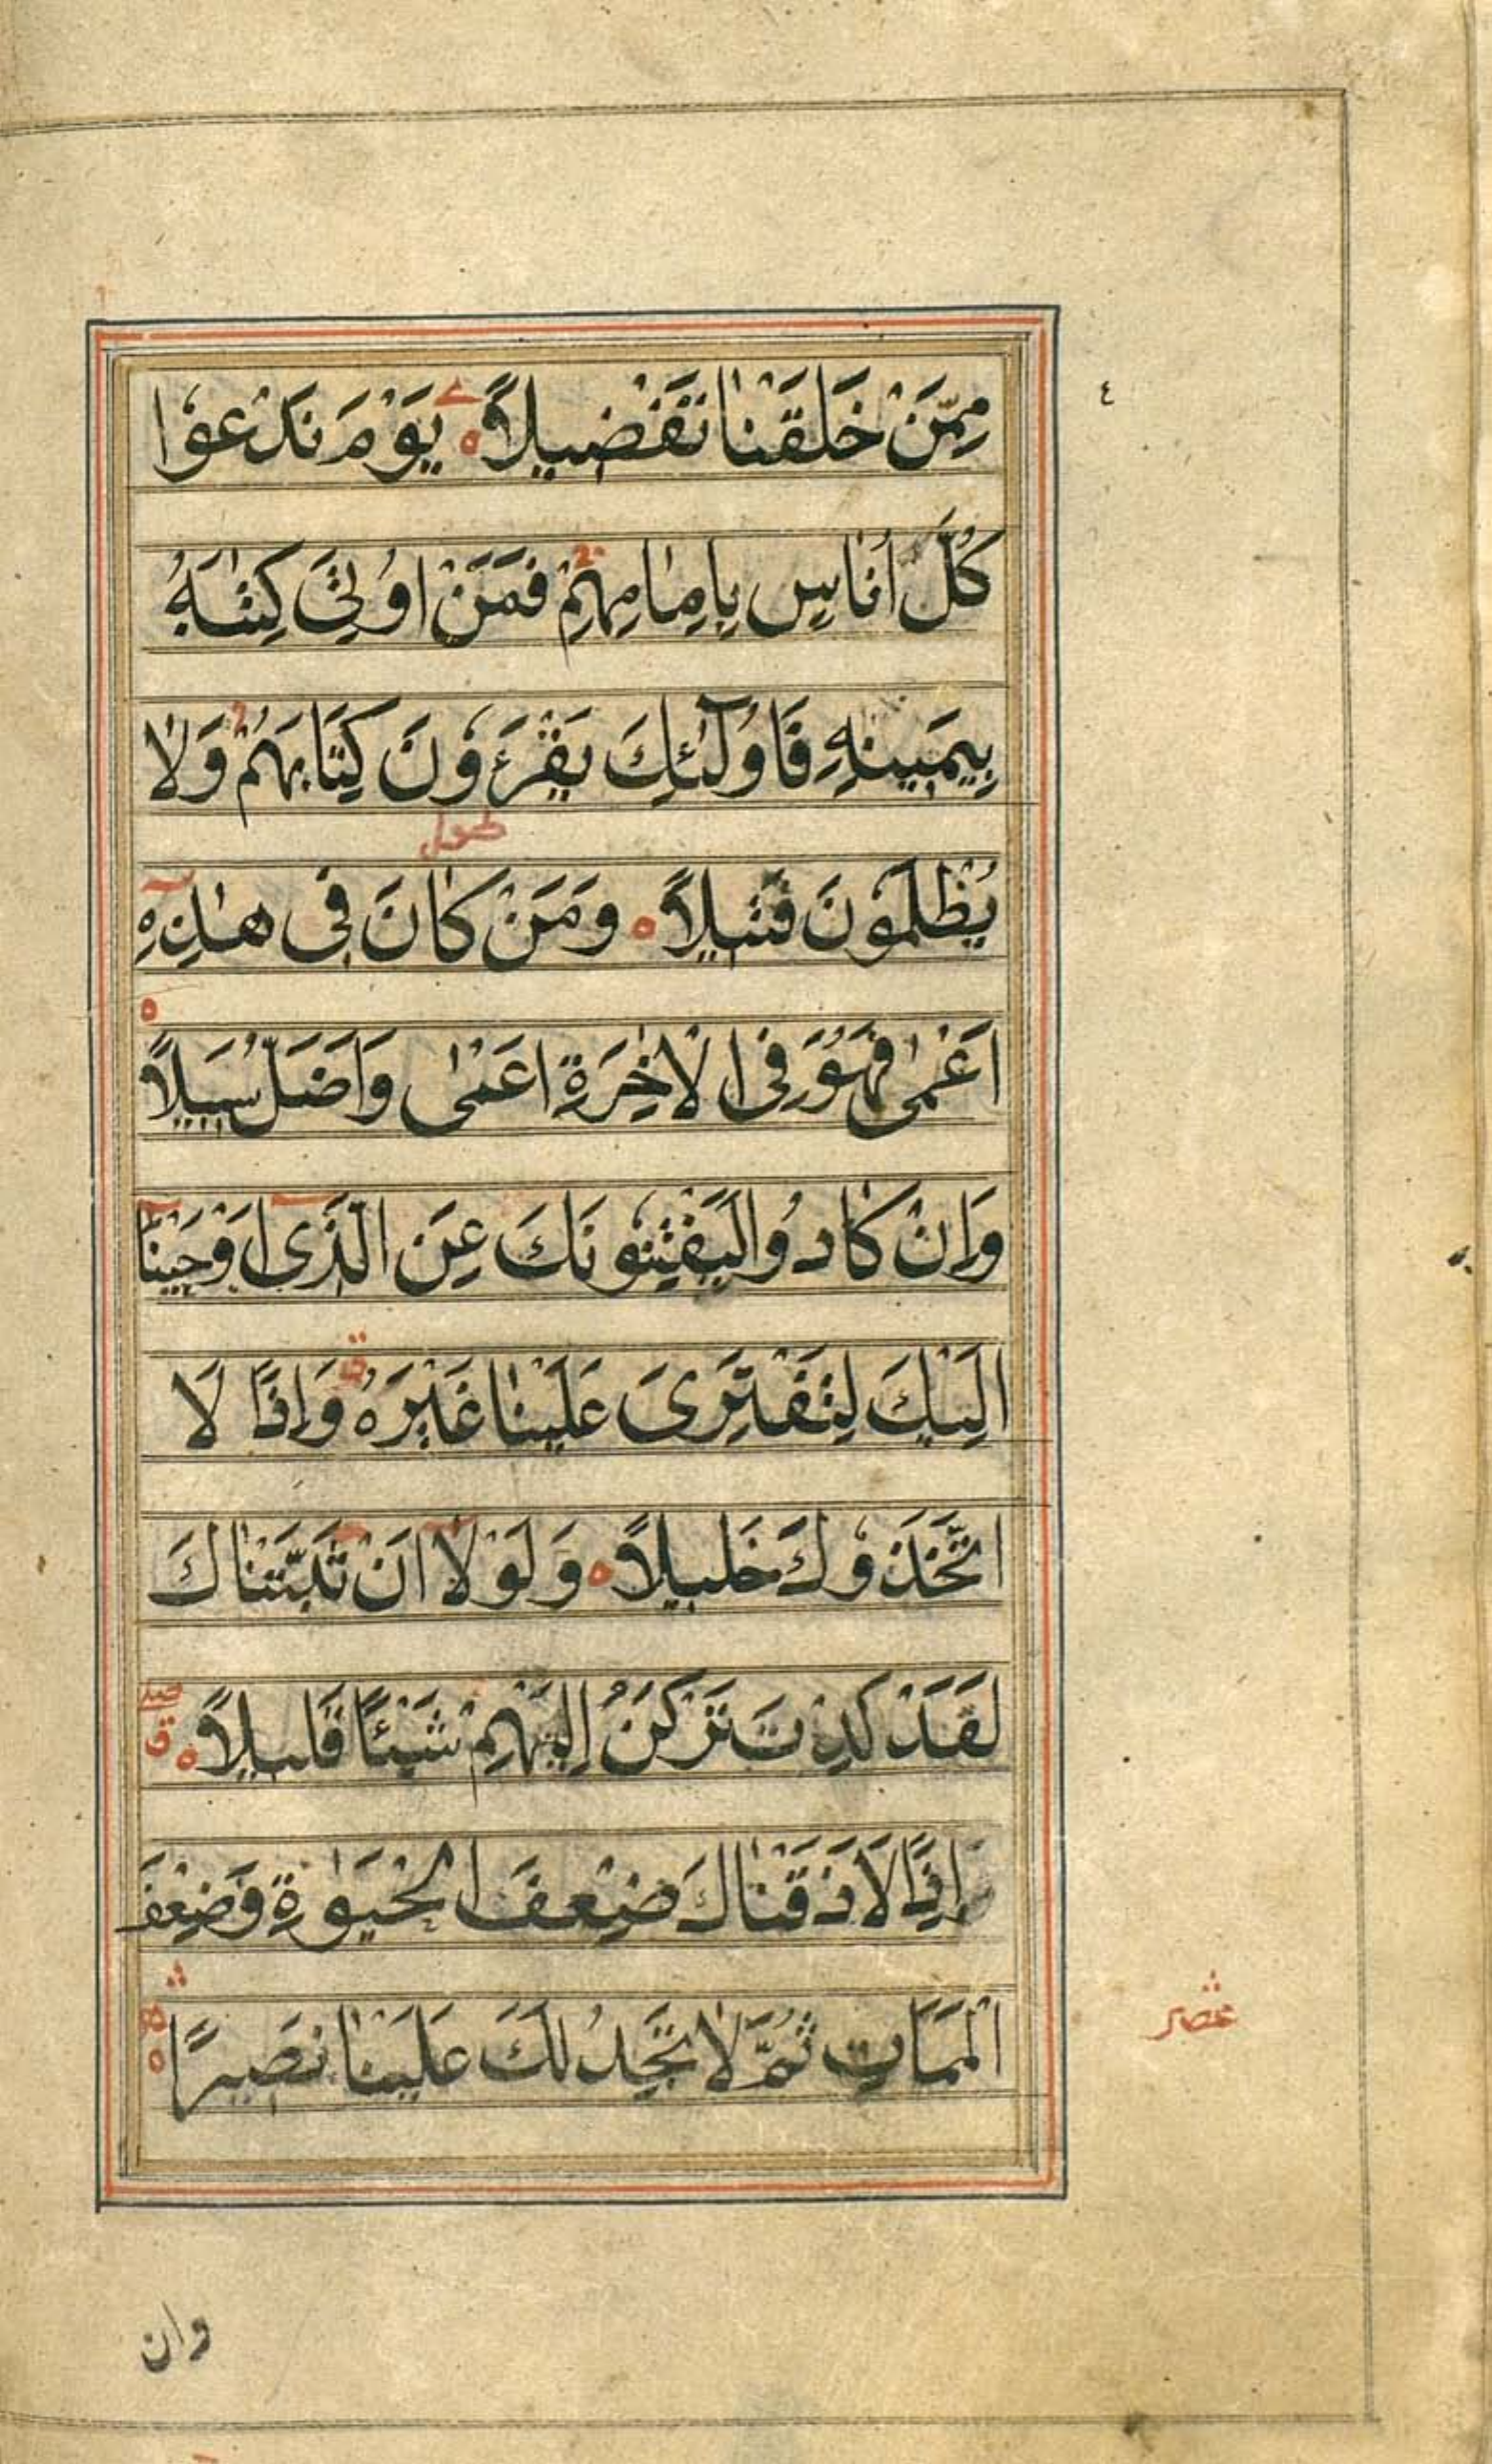 مِمَّنْ خَلَقْنَا تَفْضِيلًا ه يَوْمَ نَدْعُوا
٤
كُلَّ اُنَاسٍ بِاِمَامِهِمْ فَمَنْ اُوْتِيَ كِتٰبَهُ
بِيَمِينِهِ فَاُولٰٓئِكَ يَقْرَءُونَ كِتَابَهُمْ وَلَا
يُظْلَمُونَ فَتِيلًا ه وَمَنْ كَانَ فِى هٰذِهِ
اَعْمٰى فَهُوَ فِى الْاٰخِرَةِ اَعْمٰى وَاَضَلُّ سَبِيلًا ه
وَاِنْ كَادُوا لَيَفْتِنُونَكَ عَنِ الَّذِى اَوْحَيْنَا
اِلَيْكَ لِتَفْتَرِىَ عَلَيْنَا غَيْرَهُ ق وَاِذًا لَا
اتَّخَذُوكَ خَلِيلًا ه وَلَوْلَا اَنْ ثَبَّتْنَاكَ
لَقَدْ كِدْتَ تَرْكَنُ اِلَيْهِمْ شَيْئًا قَلِيلًا ه ق
اِذًا لَاَذَقْنَاكَ ضِعْفَ الْحَيٰوةِ وَضِعْفَ
الْمَمَاتِ ثُمَّ لَا تَجِدُ لَكَ عَلَيْنَا نَصِيرًا ه
وان